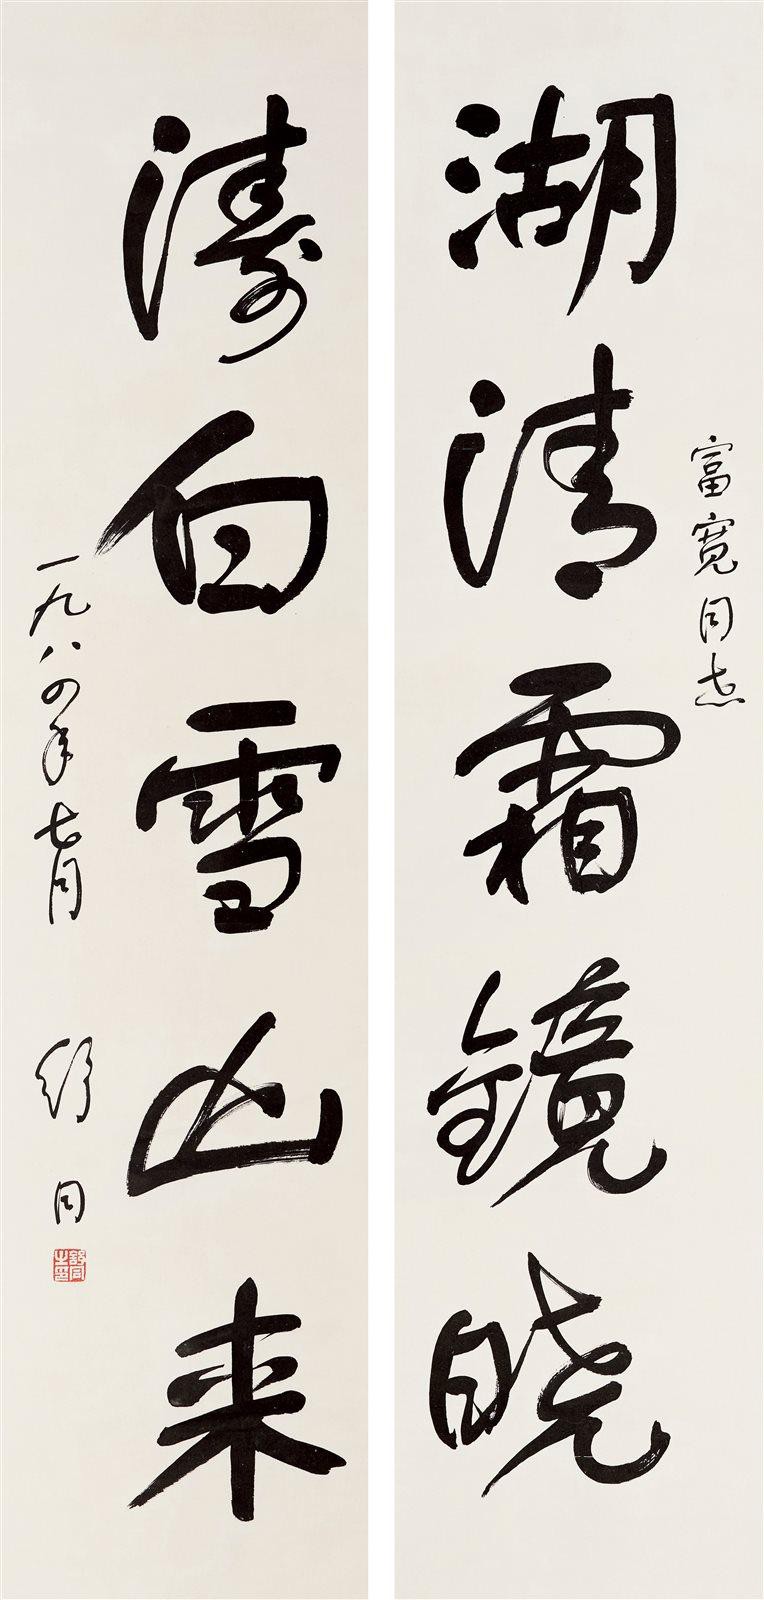 富宽同志
湖清霜镜晓
涛白雪山来
一九八四年七月
舒同
舒同之印